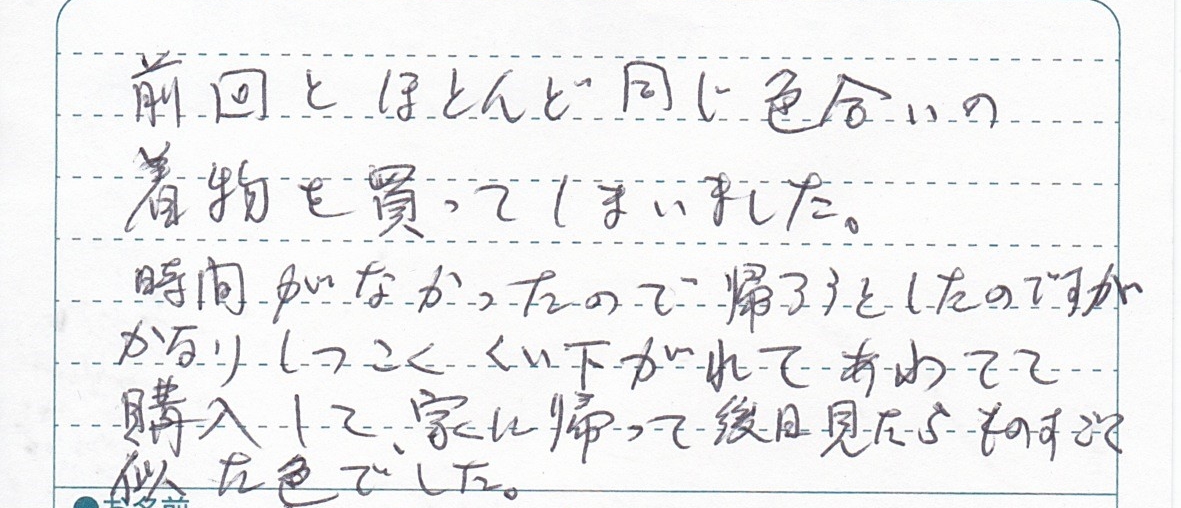 前回とほとんど同じ色合いの
着物を買ってしまいました。
時間がなかったので帰ろうとしたのですが
かなりしつこくくい下がれてあわてて
購入して、家に帰って後日見たらものすごく
似た色でした。
●お名前